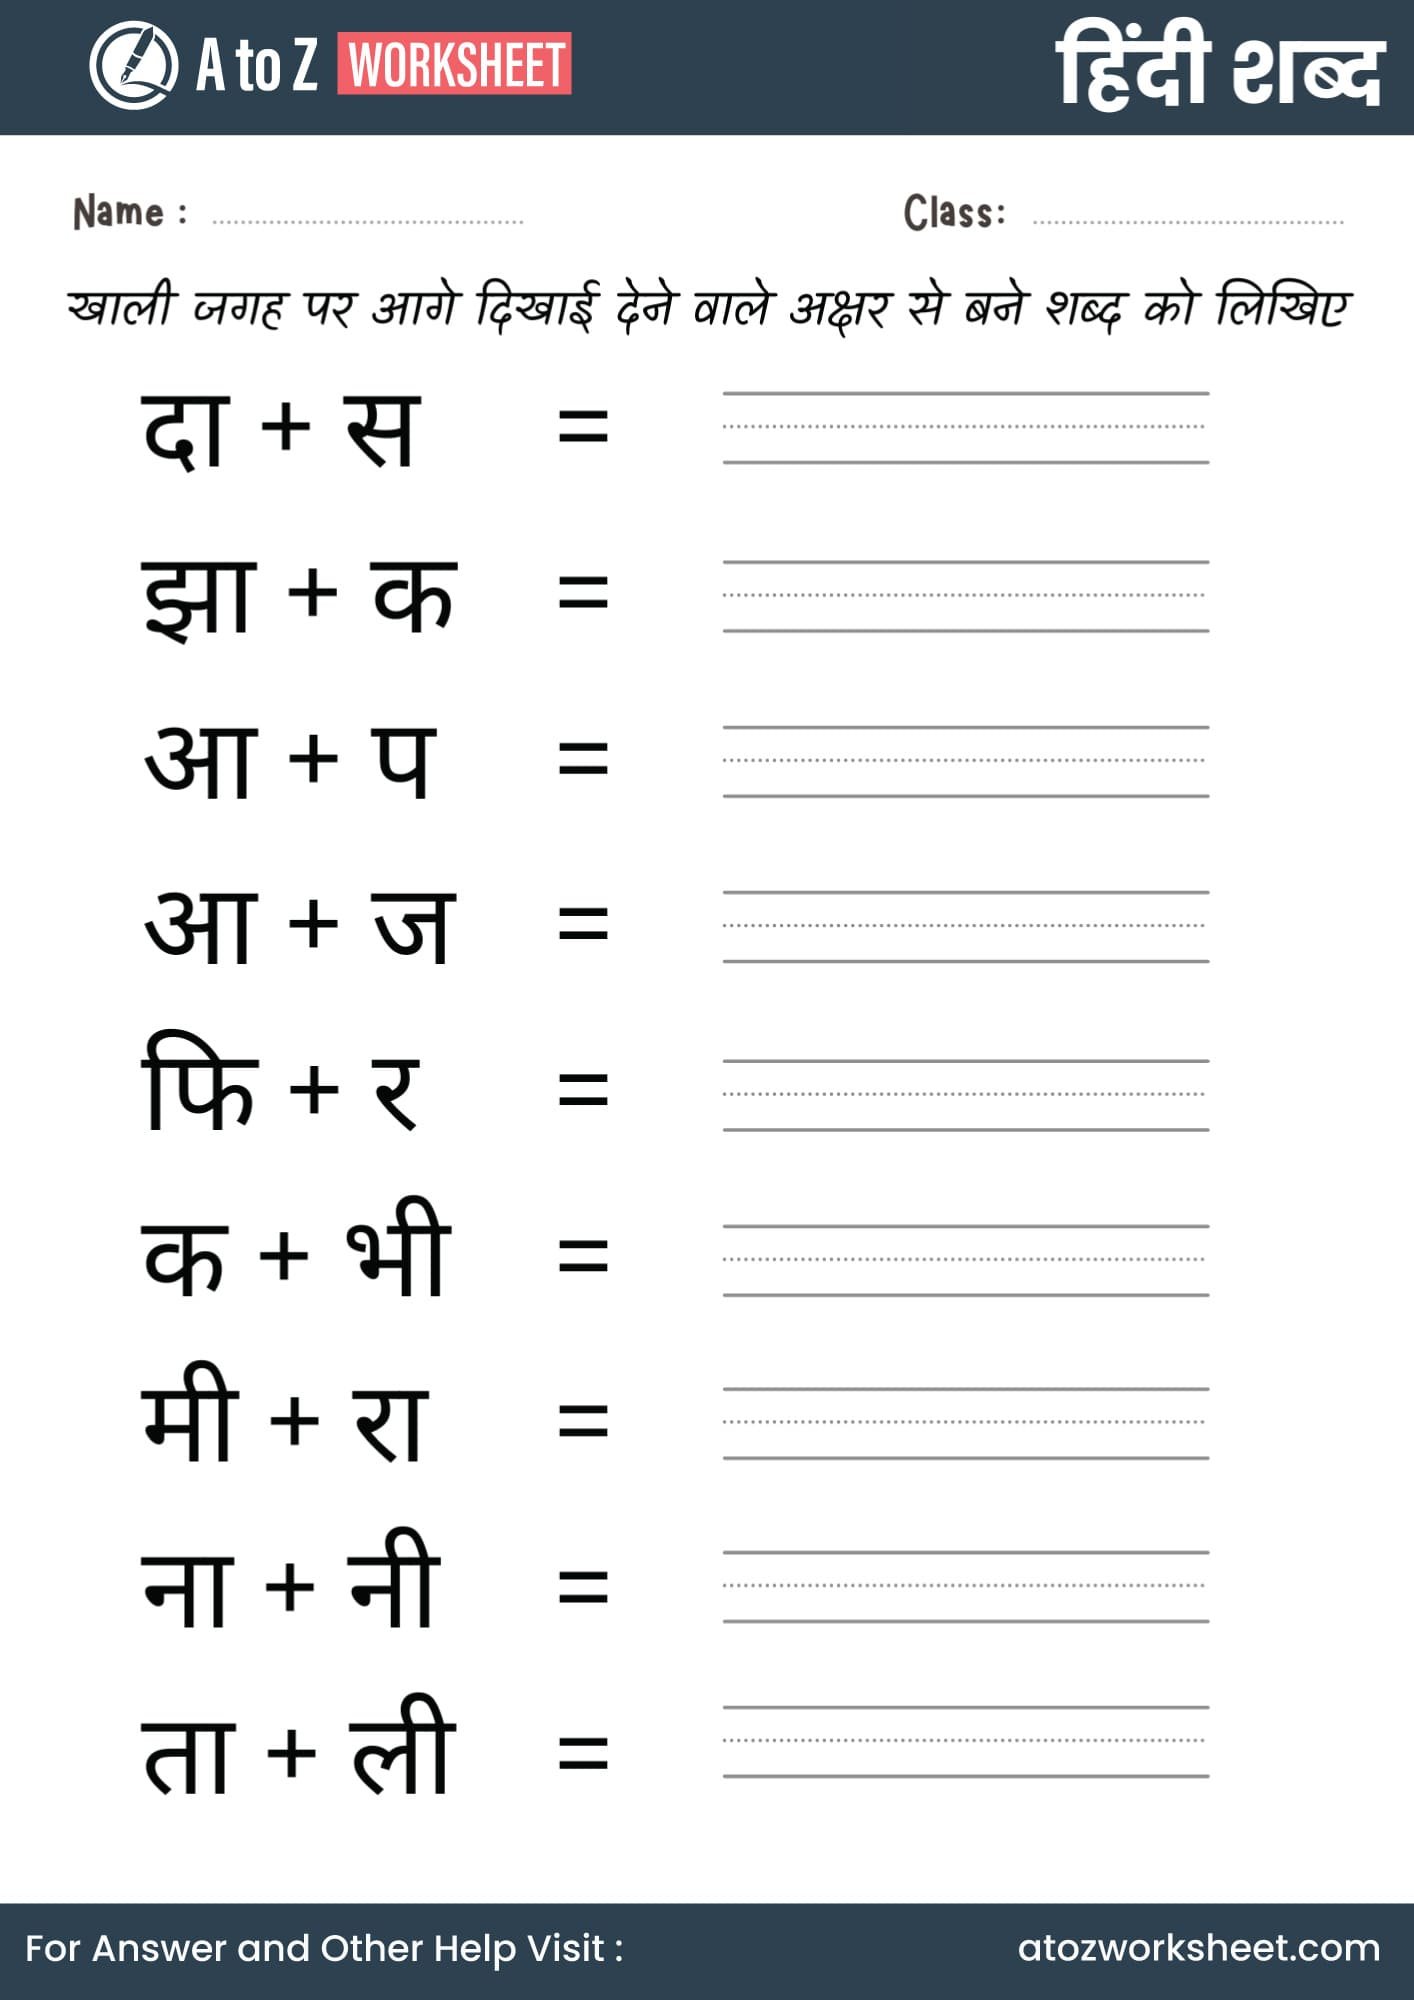 A to Z WORKSHEET हिंदी शब्द
Name : Class:
खाली जगह पर आगे दिखाई देने वाले अक्षर से बने शब्द को लिखिए
दा + स =
झा + क =
आ + प =
आ + ज =
फि + र =
क + भी =
मी + रा =
ना + नी =
ता + ली =
For Answer and Other Help Visit : atozworksheet.com